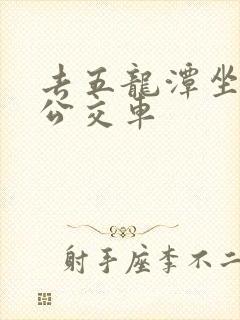 去五龍潭坐
公交車
射手座李不二